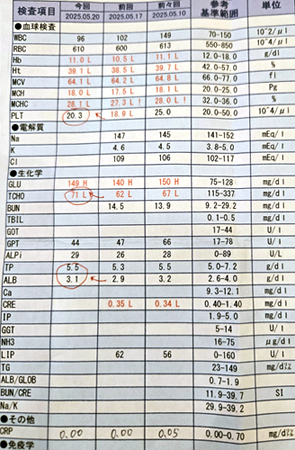 検査項目 今回 2025.05.20 前回 2025.05.17 前々回 2025.05.10 参考基準範囲 単位
●血球検査
WBC 96 102 149 70-150 10^2/μl
RBC 610 600 613 550-850 10^4/μl
Hb 11.0 L 10.5 L 11.1 L 12.0-18.0 g/dl
Ht 39.1 L 38.5 L 39.7 L 42.0-57.0 %
MCV 64.1 L 64.2 L 64.8 L 66.0-77.0 fl
MCH 18.0 L 17.5 L 18.1 L 20.0-25.0 Pg
MCHC 28.1 L 27.3 L ! 28.0 L ! 32.0-36.0 %
PLT 20.3 18.9 L 25.0 20.0-50.0 10^4/μl
●電解質
Na 147 145 141-152 mEq/l
K 4.6 4.5 3.8-5.0 mEq/l
Cl 109 106 102-117 mEq/l
●生化学
GLU 149 H 140 H 150 H 75-128 mg/dl
TCHO 71 L 62 L 67 L 115-337 mg/dl
BUN 14.5 13.9 9.2-29.2 mg/dl
TBIL 0.1-0.5 mg/dl
GOT 17-44 U/l
GPT 44 47 66 17-78 U/l
ALPi 29 26 28 0-89 U/L
TP 5.5 5.3 5.5 5.0-7.2 g/dl
ALB 3.1 2.9 3.2 2.6-4.0 g/dl
Ca 9.3-12.1 mg/dl
CRE 0.35 L 0.34 L 0.40-1.40 mg/dl
IP 1.9-5.0 mg/dl
GGT 5-14 U/l
NH3 16-75 μg/dl
LIP 62 56 0-160 U/l
TG 23-149 mg/dl
ALB/GLOB 0.7-1.9
BUN/CRE 11.9-39.7 SI
Na/K 29.9-39.2
●その他
CRP 0.00 0.00 0.05 0.00-0.70 mg/dl
●免疫学